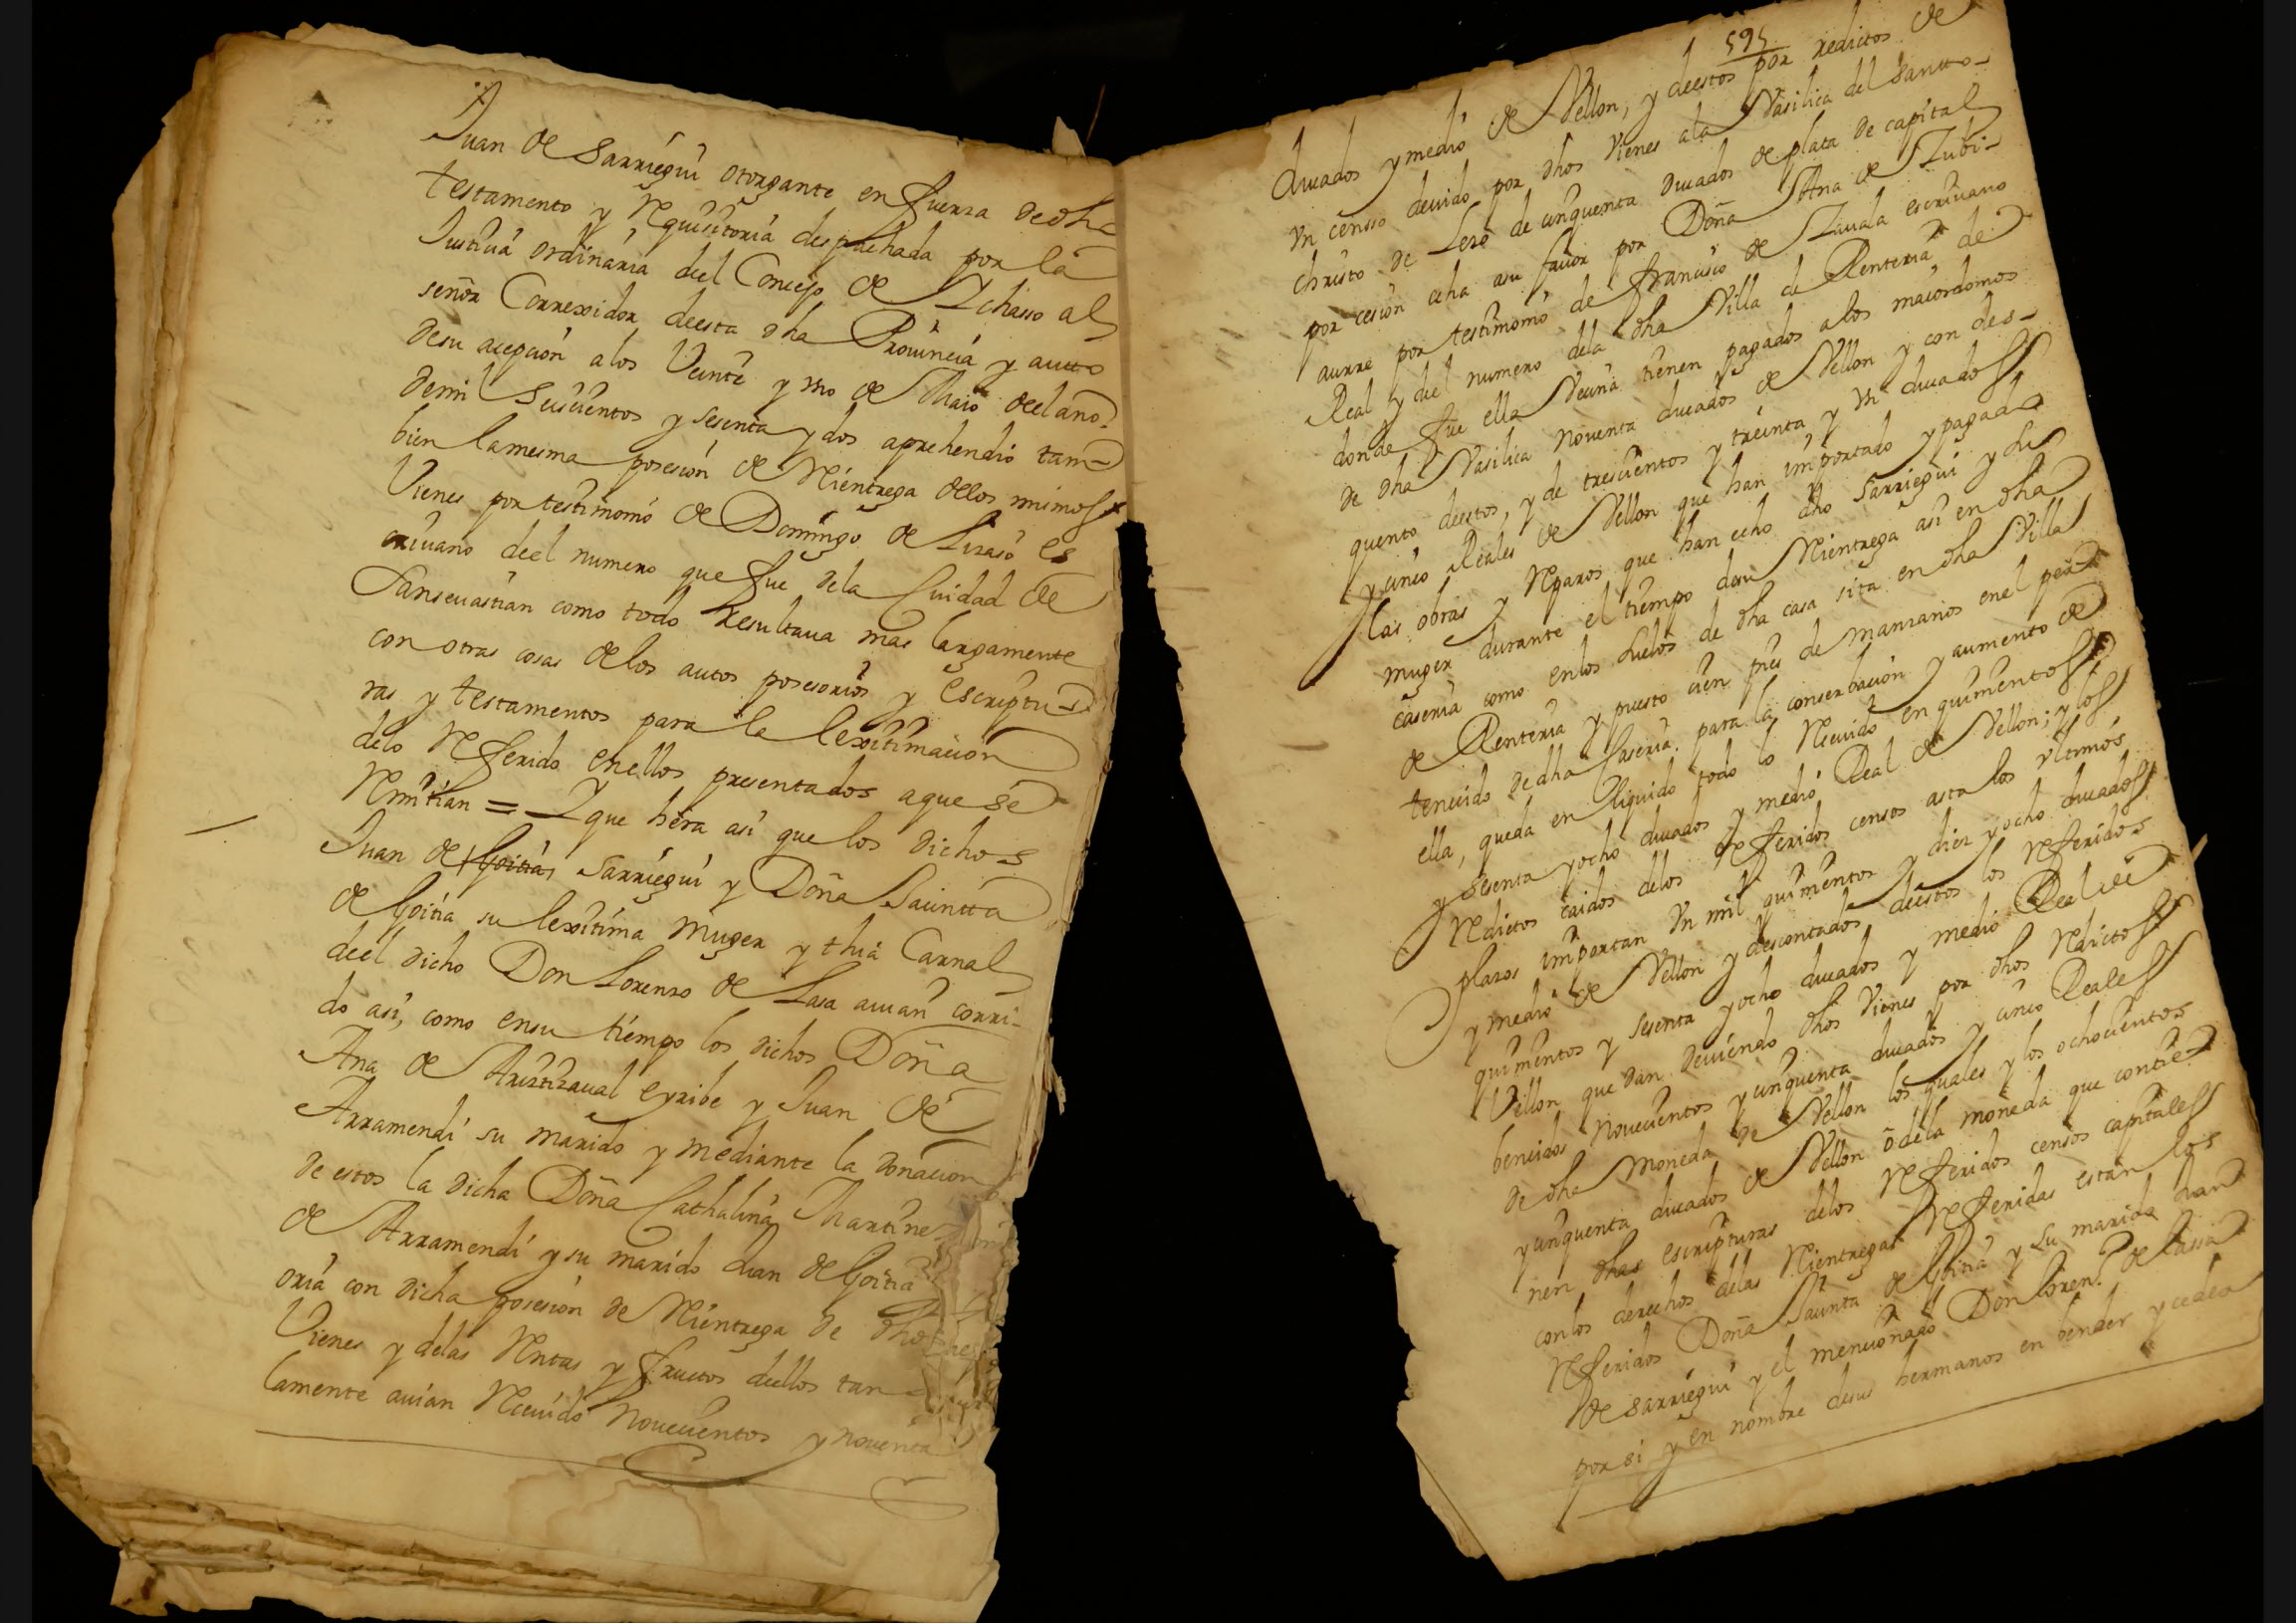 Juan de Sarriegui otorgante en fuerza de dha
testamento y Requisitoria despachada por la
Justicia ordinaria del Concejo de Ichasso al
señor Correxidor deesta dha Prouincia y autto
desu acepcion a los Veinte y vno de Maio deel año
demil Seiscientos y sesenta y dos aprehendio tam-
bien lamesma posesion de Reintrega dellos mimos
Vienes por testimonio de Domingo de Lizaso es
criuano deel numero que fue dela Ciudad de
Sanseuastian como todo Resultaua mas largamente
con otras cosas delos autos posesorios y Escriptu-
ras y testamentos para la lexitimacion
delo Referido enellos presentados aque se
Remitian = Y que hera asi que los dichos
Juan de Goitia Sarriegui y Doña Jacintta
de Goitia su lexitima muger y thia Carnal
deel dicho Don Lorenzo de Lasa auian corri-
do asi, como ensu tiempo los dichos Doña
Ana de Aristizaual eyribe y Juan de
Arramendi su marido y mediante la donacion
de estos la dicha Doña Cathalina Martinez
de Arramendi y su marido Juan de Goitia
oria con dicha posesion de Reintrega de dhos
Vienes y delas Rentas y fructos dellos tan
lamente auian Receuido Nouecientos y nouenta
595
ducados y medio de Vellon, y deestos por redictos de
vn censso deuido por dhos Vienes ala Vasilica del Santto-
christo de Lezo de cinquenta ducados de plata de capital
por cesion echa asu fauor por Doña Ana de Zubi-
aurre por testimonio de francisco de Zauala escriuano
Real y del numero dela dha Villa de Renteria de
donde fue ella Vecina tienen pagados alos maiordomos
de dha Vasilica nouenta ducados de Vellon y con des-
quento deestos, y de trescientos y treinta y vn ducados
y cinco Reales de Vellon que han importado y pagado
las obras y Reparos que han echo dho Sarriegui y su
muger durante el tiempo desu Reintrega asi en dha
caseria como enlos suelos de dha casa sita en dha Villa
de Renteria y puesto cien pies de manzanos enel perte
tenecido de dha Caseria para la conserbacion y aumento de
ella, queda en liquido todo lo Receuido en quinientos
y sesenta y ocho ducados y medio Real de Vellon; y los
Redictos caidos delos Referidos censos asta los vltimos
plazos importan vn mil quinientos y diez y ocho ducados
y medio de Vellon y descontados deestos los Referidos
quinientos y sesenta y ocho ducados y medio Real de
Vellon que dan deuiendo dhos Vienes por dhos Redictos
bencidos nouecientos y cinquenta ducados y cinco Reales
de dha moneda de Vellon los quales y los ochocientos
y cinquenta ducados de Vellon o dela moneda que contie-
nen dhas escripturas delos Referidos censos capitales
conlos derechos delas Reintregas Referidas estan los
Referidos Doña Jacinta de Goitia y su marido Juan
de Sarriegui y el mencionado Don Loren.º de Lassa
por si y en nombre desus hermanos en bender y ceder